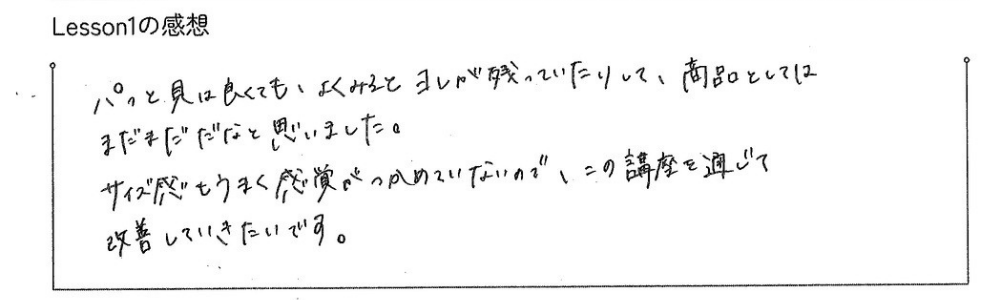 Lesson1の感想
パッと見は良くても、よくみると ヨレが残っていたりして、商品としては
まだまだだなと思いました。
サイズ感もうまく感覚がつかめていないので、この講座を通じて
改善していきたいです。